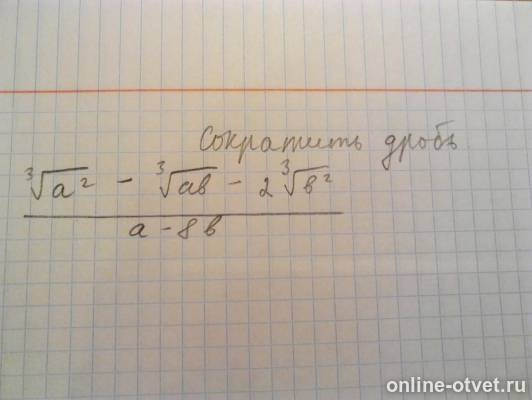 Сократить дробь
∛a² - ∛ab - 2∛b²
a - 8b
online-otvet.ru